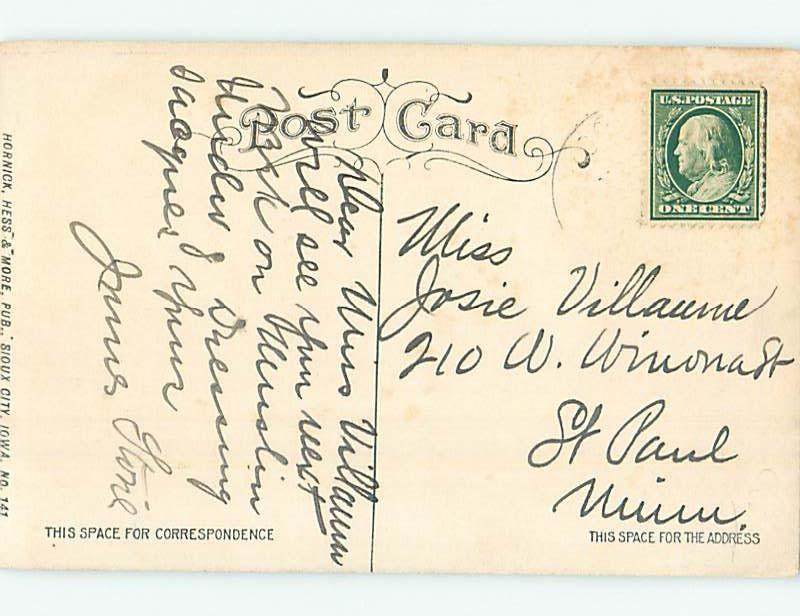 Post Card
U.S. POSTAGE
ONE CENT
Dear Miss Villaume
Will see you next
week on Muslin
Under & Dressing
Sacques Yours
James Stone
Miss
Josie Villaume
210 W. Winona St
St Paul
Minn.
THIS SPACE FOR CORRESPONDENCE
THIS SPACE FOR THE ADDRESS
HORNICK, HESS & MORE, PUB., SIOUX CITY, IOWA. NO. 141